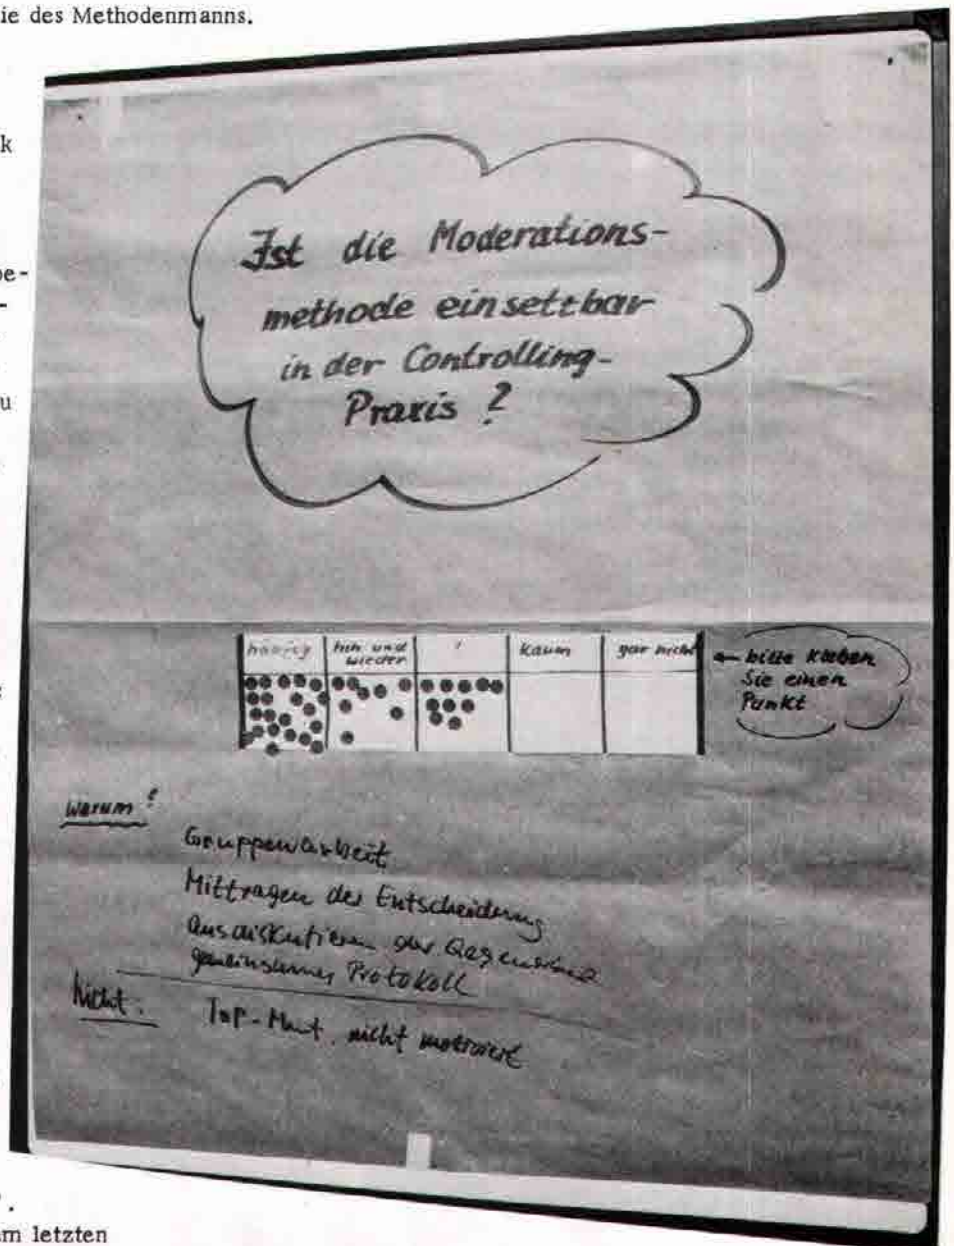 ie des Methodenmanns.
k
be-
-
u
Ist die Moderations-
methode einsetzbar
in der Controlling-
Praxis ?
häufig
hin und
wieder
kaum
gar nicht
← bitte kleben
Sie einen
Punkt
Warum?
Gruppenarbeit
Mittragen der Entscheidung
ausdiskutieren der Gegensätze
gemeinsames Protokoll
Nicht:
Top-Mmt. nicht motiviert
m letzten